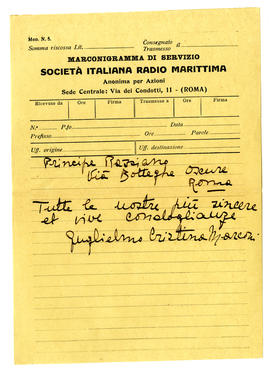 Mod. N. 8.
Somma riscossa Lit.
Consegnato
Trasmesso a
MARCONIGRAMMA DI SERVIZIO
SOCIETÀ ITALIANA RADIO MARITTIMA
Anonima per Azioni
Sede Centrale: Via dei Condotti, 11 - (ROMA)
Ricevuto da Ore Firma Trasmesso a Ore Firma
N. P.fo Data
Prefisso Ore Parole
Uff. origine Uff. destinazione
Principe Bassiano
Via Botteghe oscure
Roma
Tutte le nostre più sincere
et vive condoglianze
Guglielmo Cristina Marconi